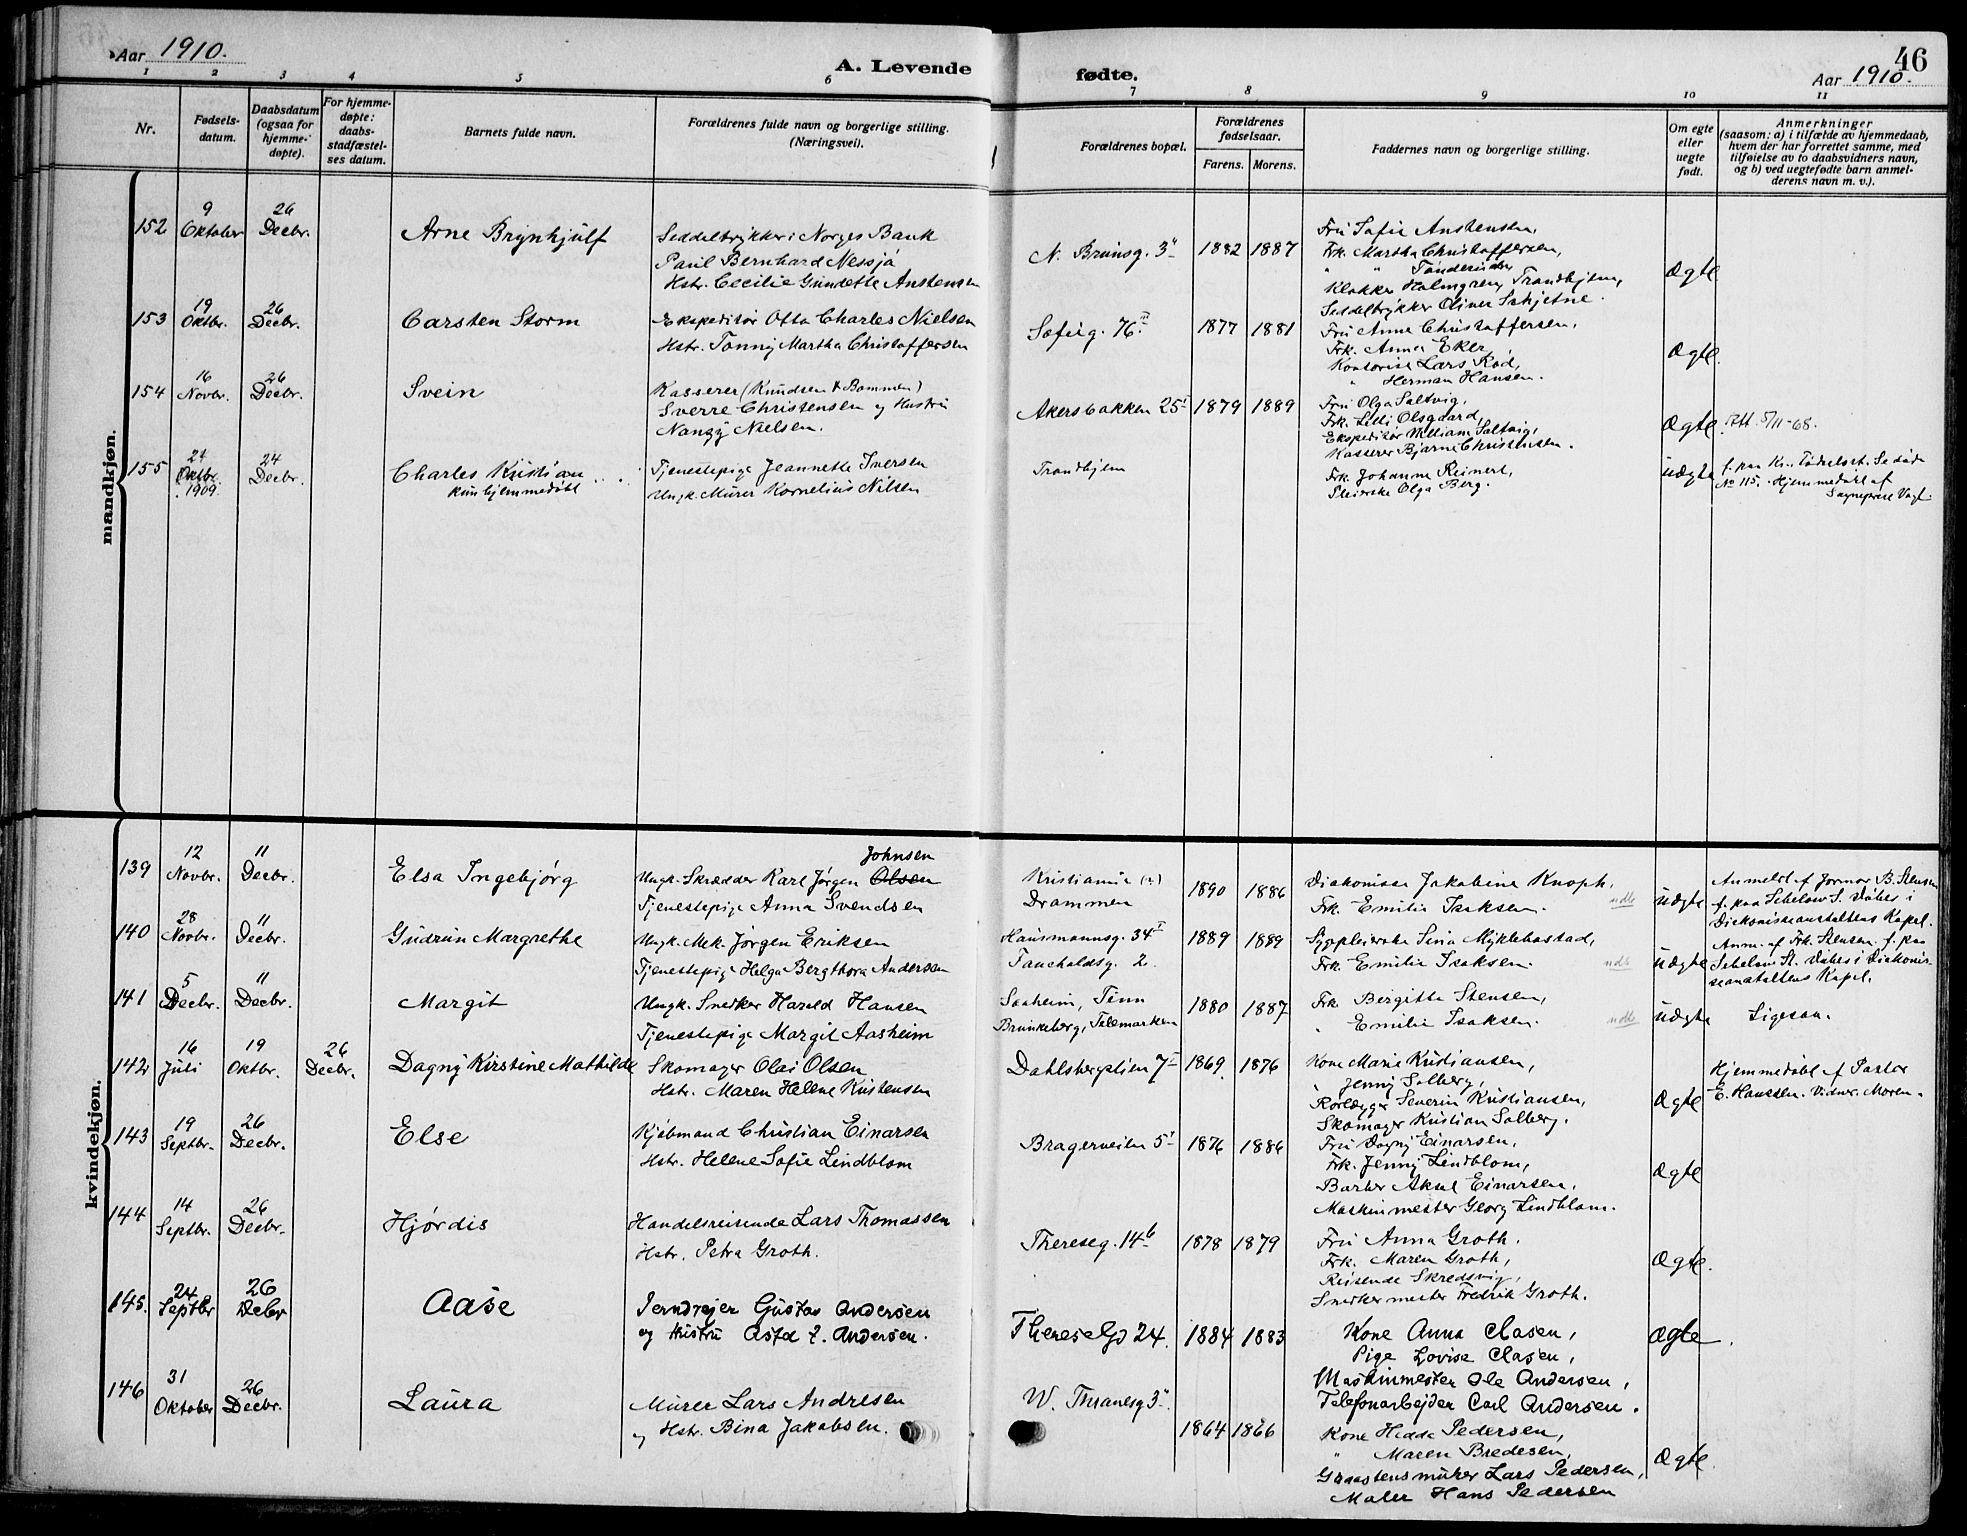 Aar 1910.
A. Levende fødte.
46
Aar 1910.
1 2 3 4 5 6 7 8 9 10 11
Nr.
Fødsels-
datum.
Daabsdatum
(ogsaa for
hjemme-
døpte).
For hjemme-
døpte:
daabs-
stadfæstel-
ses datum.
Barnets fulde navn.
Forældrenes fulde navn og borgerlige stilling.
(Næringsvei).
Forældrenes bopæl.
Forældrenes
fødselsaar.
Farens. Morens.
Faddernes navn og borgerlige stilling.
Om egte
eller
uegte
født.
Anmerkninger
(saasom: a) i tilfælde av hjemmedaab,
hvem der har forrettet samme, med
tilføielse av to daabsvidners navn,
og b) ved uegtefødte barn anmel-
derens navn m. v.).
mandkjøn.
152
9
Oktober
26
Decbr.
Arne Brynhjulf
Seddeltrykker i Norges Bank
Paul Bernhard Nessjø
Hstr. Cecilie Gundette Anstensen
N. Brunsg. 3
1882 1887
Fru Sofie Anstensen,
Frk. Martha Christoffersen,
Klokker Holmgren, Trondhjem,
Seddeltrykker Oliver Schjetne.
Ægte
153
19
Oktbr.
26
Decbr.
Carsten Storm
Ekspeditør Otto Charles Nielsen
Hstr. Tonny Martha Christoffersen
Sofieg. 76
1877 1881
Fru Anna Christoffersen,
Frk. Anna Eker,
Kontorist Lars Rød,
" Herman Hansen.
Ægte
154
16
Novbr.
26
Decbr.
Svein
Kasserer (Knudsen & Bommen)
Sverre Christensen og Hustru
Nangy Nielsen.
Akersbakken 25
1879 1889
Fru Olga Saltvig,
Frk. Lilli Olsgaard,
Ekspeditør William Saltvig,
Kasserer Bjarne Christensen.
Ægte
Att. 5/11-68.
155
24
Oktbr.
1909
24
Decbr.
Charles Kristian
kun hjemmedøbt
Tjenestepige Jeannette Iversen
Ungk. Murer Kornelius Nilsen
Trondhjem
Frk. Johanne Reinert,
Pleierske Olga Berg.
Uægte
f. paa Kr. Fødselsst. Se døde
No 115. Hjemmedøbt af
Sogneprest Vogt.
kvindekjøn.
139
12
Novbr.
11
Decbr.
Elsa Ingebjørg
Johnsen
Ungk. Skrædder Karl Jørgen Olsen
Tjenestepige Anna Svendsen
Kristiania
Drammen
1890 1886
Diakonisse Jakobine Knoph,
Frk. Emilie Isaksen.
Uægte
Anmeldt af Jormor B. Stensen
Diakonisseanstaltens Kapel.
140
28
Novbr.
11
Decbr.
Gudrun Margrethe
Ungk. Mek. Jørgen Eriksen
Tjenestepige Helga Bergthora Andersen
Hausmannsg. 34
Fauchaldsg. 2.
1889 1889
Sygepleierske Sina Myklebostad,
Frk. Emilie Isaksen.
Uægte
Anm. af Frk. Stensen. f. paa
Sebelows St. Døbes i Diakonis-
seanstaltens Kapel.
141
5
Decbr.
11
Decbr.
Margit
Ungk. Snedker Harald Hansen
Tjenestepige Margit Aasheim
Saaheim, Tinn
Brunkeberg, Telemarken
1880 1887
Frk. Birgitte Stensen,
" Emilie Isaksen.
Uægte
Ligesaa.
142
16
Juli
19
Oktbr.
26
Decbr.
Dagny Kirstine Mathilde
Skomager Olai Olsen
Hstr. Maren Helene Kristensen
Dahlsbergstien 7
1869 1876
Kone Marie Kristiansen,
" Jenny Solberg,
Rørlægger Severin Kristiansen,
Skomager Kristian Solberg.
Ægte
Hjemmedøbt af Pastor
E. Hanssen. Vidner. Moren.
143
19
Septbr.
26
Decbr.
Else
Kjøbmand Christian Einarsen
Hstr. Helene Sofie Lindblom
Bragerveien 5
1876 1886
Fru Dagny Einarsen,
Frk. Jenny Lindblom,
Barber Aksel Einarsen,
Maskinmester Georg Lindblom.
Ægte
144
14
Septbr.
26
Decbr.
Hjørdis
Handelsreisende Lars Thomassen
Hstr. Petra Groth.
Thereseg. 14b
1878 1879
Fru Anna Groth.
Frk. Maren Groth,
Reisende Skredsvig,
Snedkermester Fredrik Groth.
Ægte.
145.
24
Septbr
26
Debr
Aase
Jerndrejer Gustav Andersen
og Hustru Astd F. Andersen.
Therese Gd 24.
1884 1883
Kone Anna Clasen,
Pige Lovise Clasen,
Maskinmester Ole Andersen,
Telefonarbejder Carl Andersen.
Ægte.
146
31
Oktober
26
Decbr.
Laura
Murer Lars Andresen
og Hstr. Bina Jakobsen.
W. Thranesg 3
1864 1866
Kone Hedda Pedersen,
" Maren Bredesen,
Graastensmurer Lars Pedersen,
Maler Hans Pedersen
Ægte.